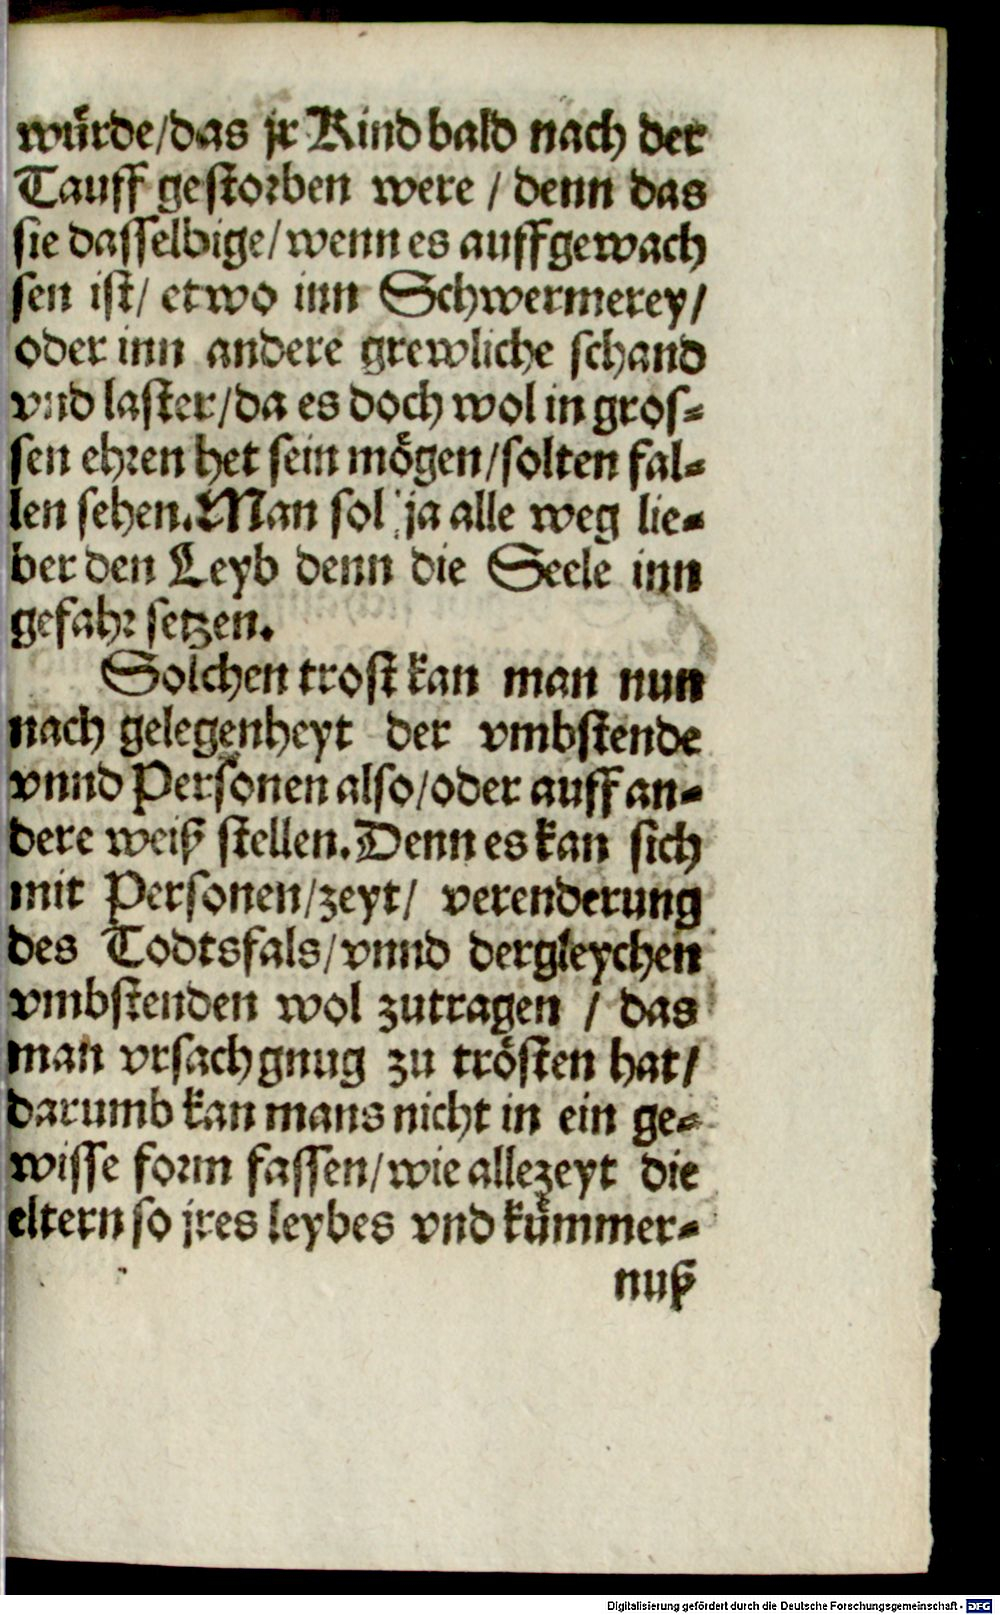 würde/das jr Kind bald nach der
Tauff gestorben were / denn das
sie dasselbige/wenn es auffgewach
sen ist/ etwo inn Schwermerey/
oder inn andere grewliche schand
vnd laster/da es doch wol in gros-
sen ehren het sein mögen/solten fal-
len sehen. Man sol ja alle weg lie-
ber den Leyb denn die Seele inn
gefahr setzen.
Solchen trost kan man nun
nach gelegenheyt der vmbstende
vnnd Personen also/oder auff an-
dere weiß stellen. Denn es kan sich
mit Personen/zeyt/ verenderung
des Todtsfals/vnnd dergleychen
vmbstenden wol zutragen / das
man vrsach gnug zu trösten hat/
darumb kan mans nicht in ein ge-
wisse form fassen/wie allezeyt die
eltern so jres leybes vnd kümmer-
nuß
Digitalisierung gefördert durch die Deutsche Forschungsgemeinschaft - DFG